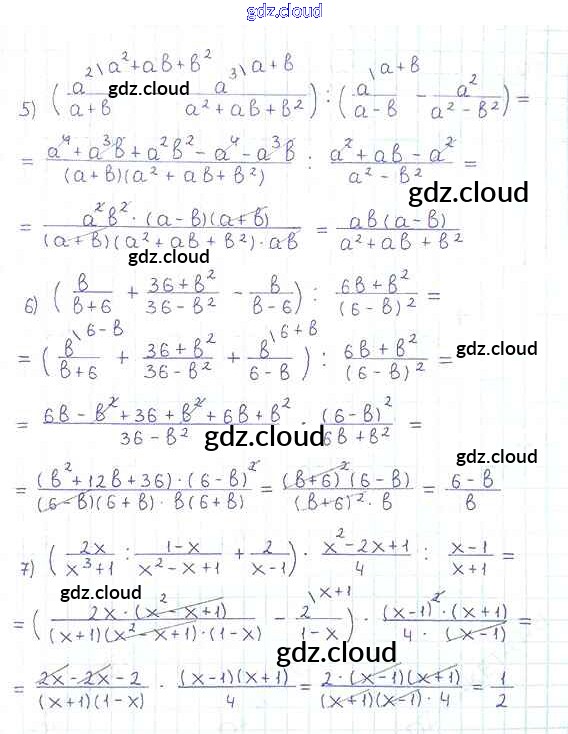 gdz.cloud
5) (a^2\a^2+ab+b^2 / (a+b) gdz.cloud a^3\a+b / (a^2+ab+b^2)) : (a\a+b / (a-b) - a^2/(a^2-b^2)) =
= (a^4+a^3b+a^2b^2-a^4-a^3b)/((a+b)(a^2+ab+b^2)) : (a^2+ab-a^2)/(a^2-b^2) =
gdz.cloud
= (a^2b^2·(a-b)(a+b))/((a+b)(a^2+ab+b^2)·ab) = (ab(a-b))/(a^2+ab+b^2)
gdz.cloud
6) (b/(b+6) + (36+b^2)/(36-b^2) - b/(b-6)) : (6b+b^2)/(6-b)^2 =
= (b\6-b / (b+6) + (36+b^2)/(36-b^2) + b\6+b / (6-b)) : (6b+b^2)/(6-b)^2 = gdz.cloud
= (6b-b^2+36+b^2+6b+b^2)/(36-b^2) · (6-b)^2/(6b+b^2) =
gdz.cloud
= ((b^2+12b+36)·(6-b)^2)/((6-b)(6+b)·b(6+b)) = ((b+6)^2(6-b))/((b+6)^2·b) = (6-b)/b
gdz.cloud
7) (2x/(x^3+1) : (1-x)/(x^2-x+1) + 2/(x-1)) · (x^2-2x+1)/4 : (x-1)/(x+1) =
gdz.cloud
= (2x·(x^2-x+1)/((x+1)(x^2-x+1)·(1-x)) - 2\x+1 / (1-x)) · ((x-1)^2·(x+1))/(4·(x-1)) =
gdz.cloud
= (2x-2x-2)/((x+1)(1-x)) · ((x-1)(x+1))/4 = (2·(x-1)(x+1))/((x+1)(x-1)·4) = 1/2